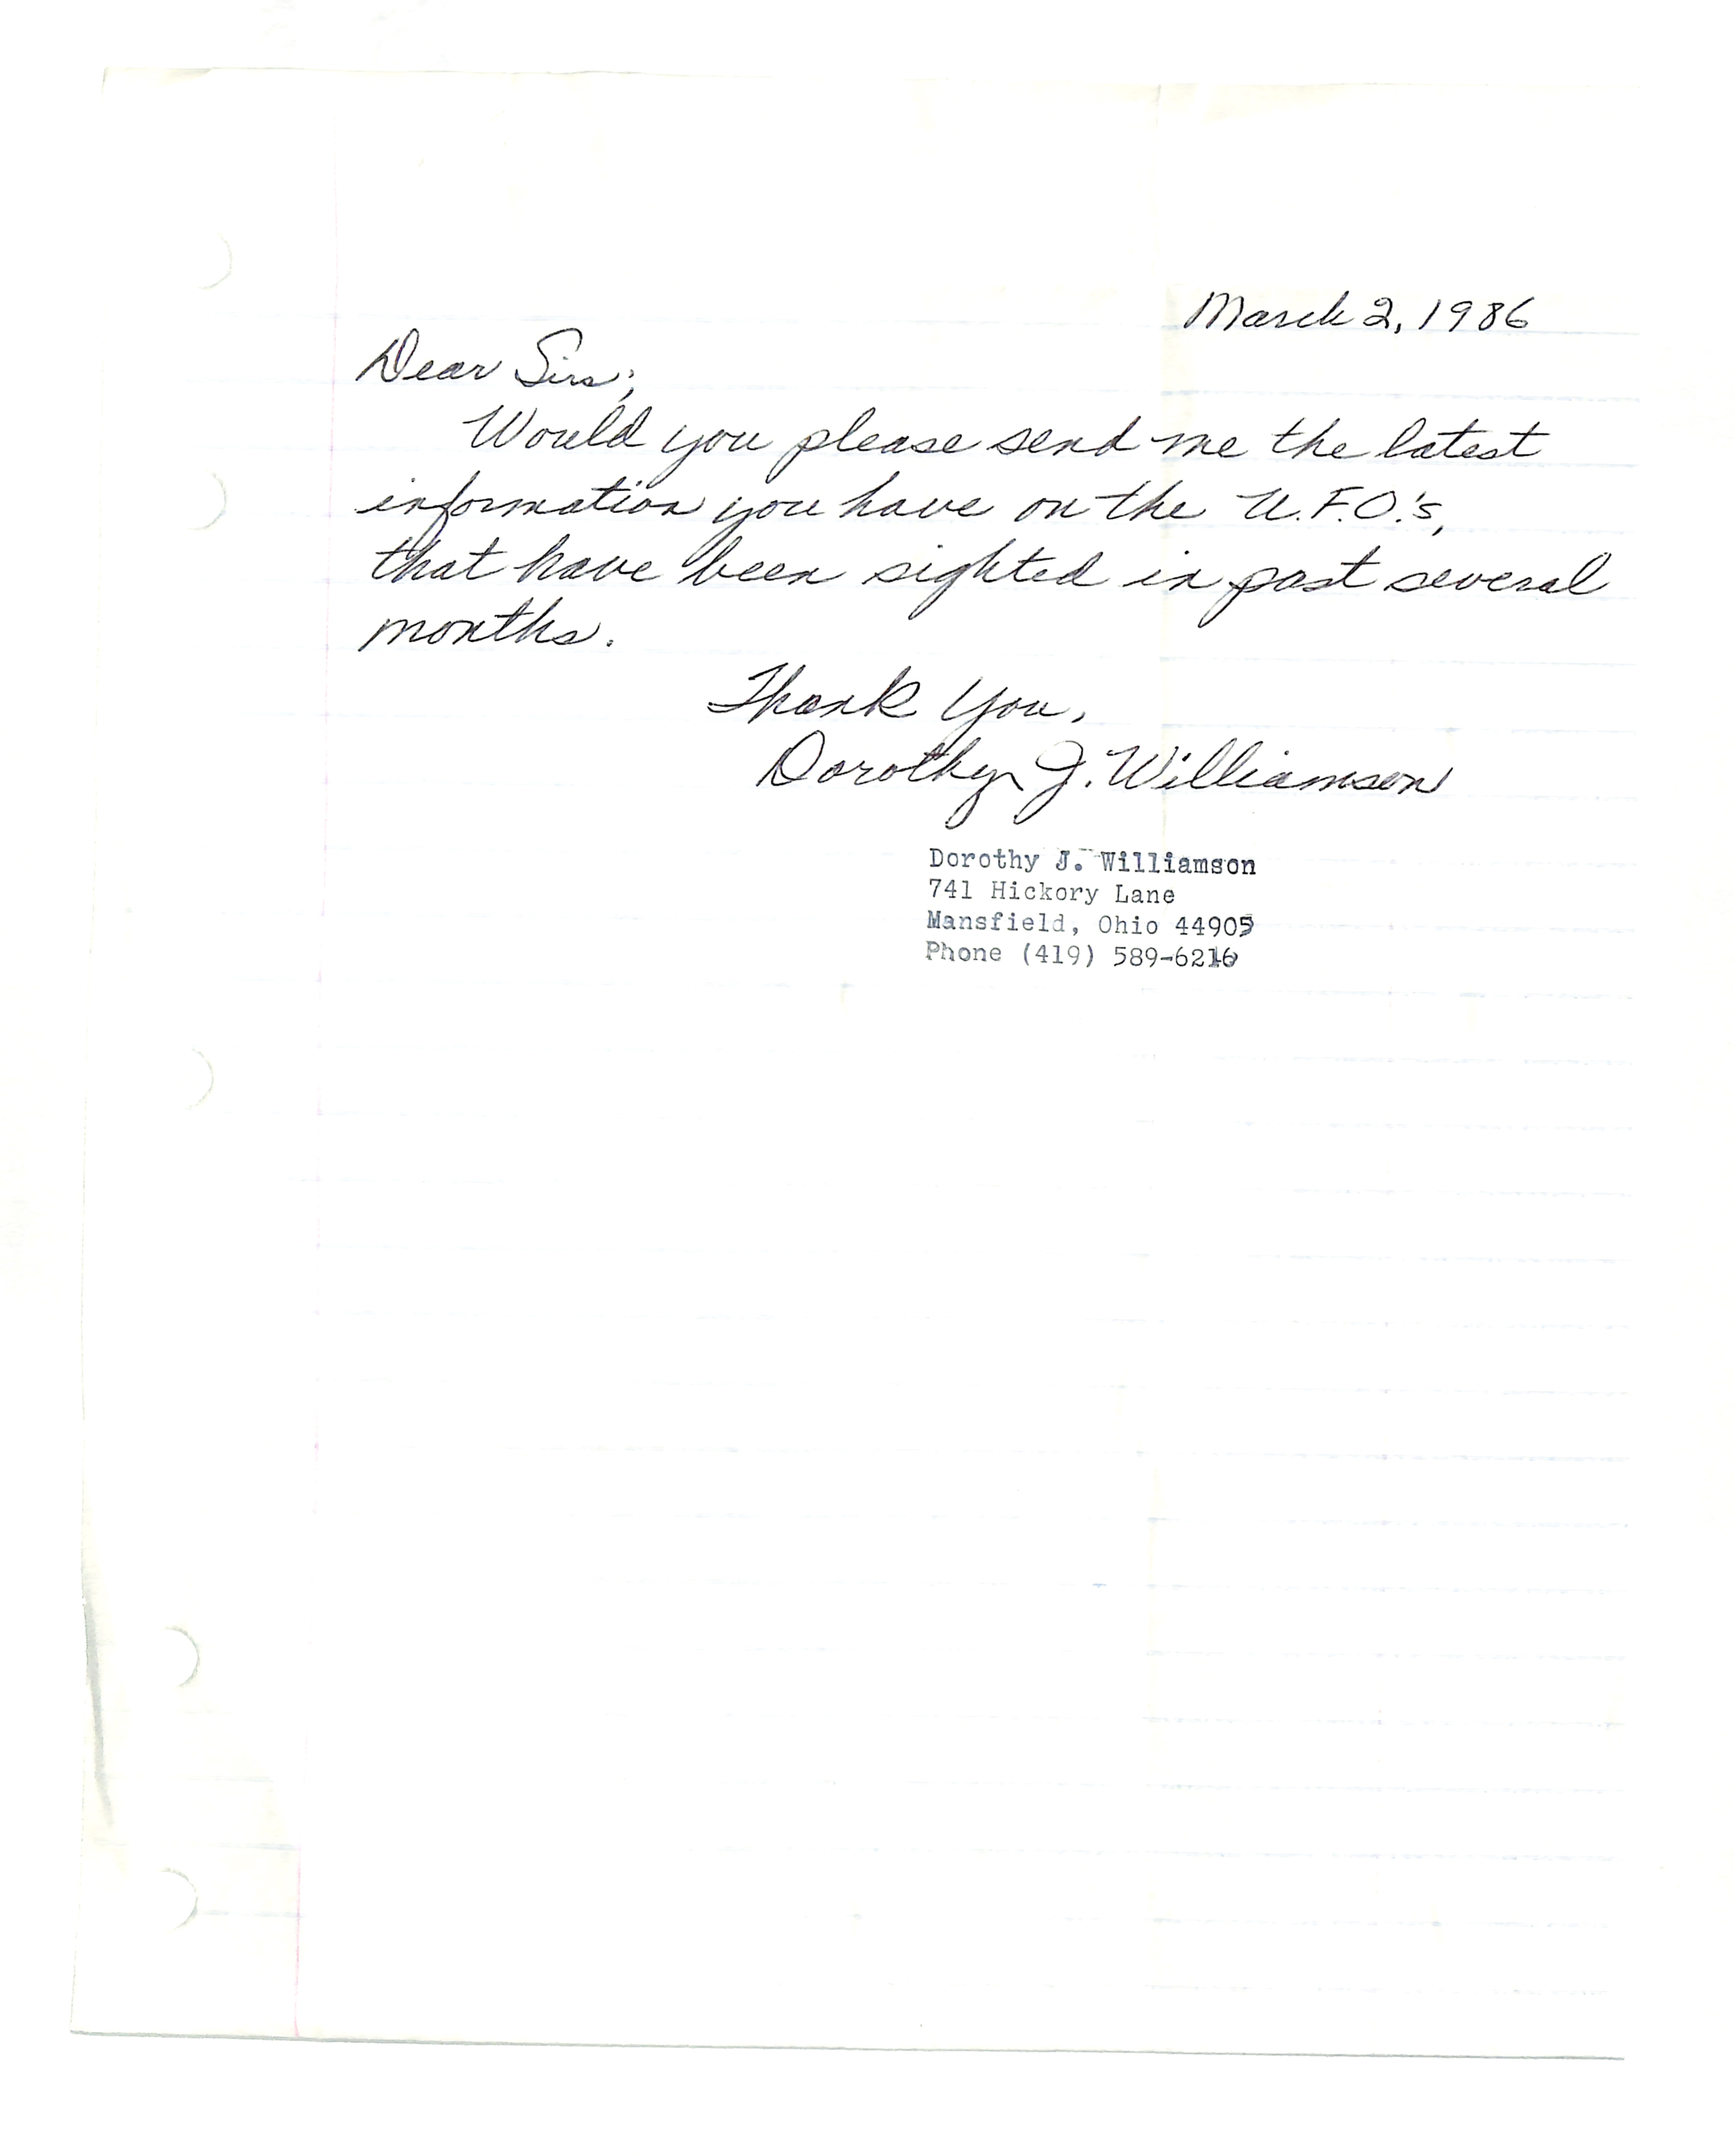 March 2, 1986
Dear Sirs;
Would you please send me the latest
information you have on the U.F.O.'s,
that have been sighted in past several
months.
Thank You,
Dorothy J. Williamson
Dorothy J. Williamson
741 Hickory Lane
Mansfield, Ohio 44905
Phone (419) 589-6216